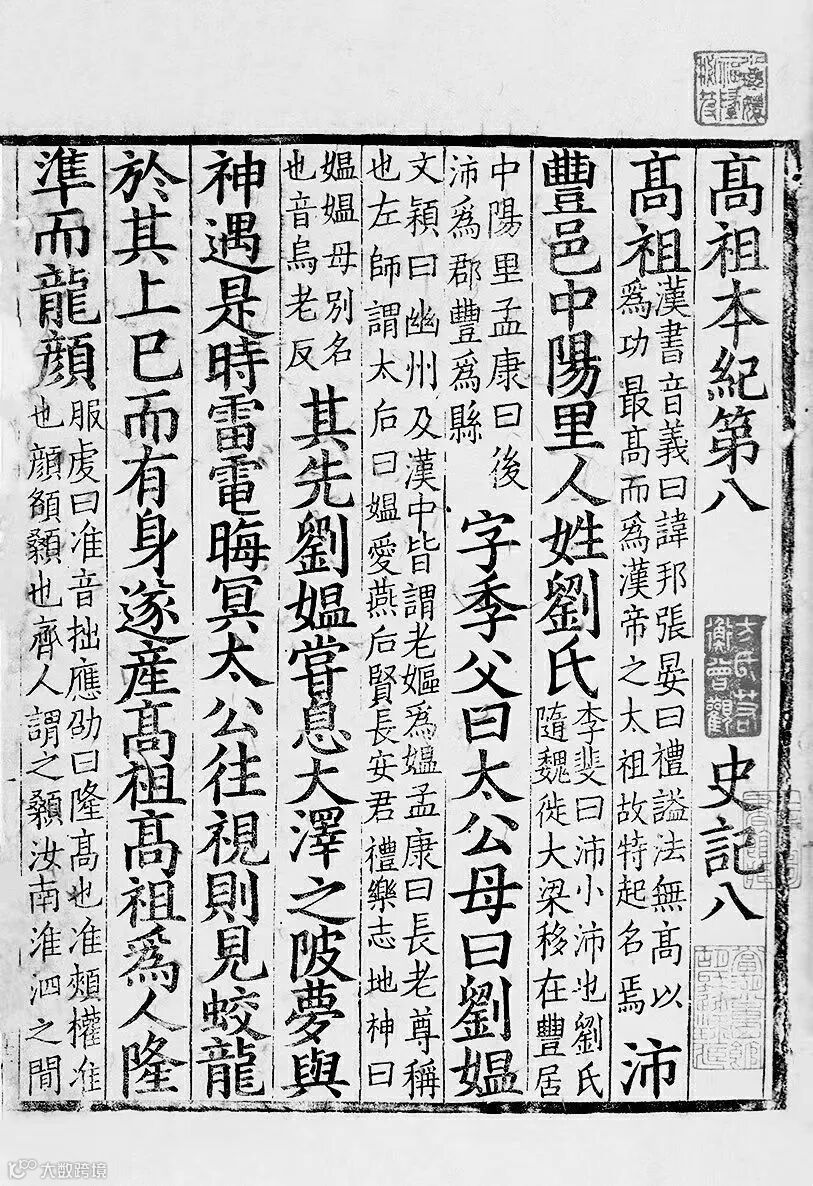 髙祖本紀第八 史記八
髙祖
漢書音義曰諱邦張晏曰禮謚法無髙以
爲功最髙而爲漢帝之太祖故特起名焉
沛
豐邑中陽里人姓劉氏
李斐曰沛小沛也劉氏
隨魏徙大梁移在豐居
中陽里孟康曰後
沛爲郡豐爲縣
字季父曰太公母曰劉媼
文穎曰幽州及漢中皆謂老嫗爲媼孟康曰長老尊稱
也左師謂太后曰媼愛燕后賢長安君禮樂志地神曰
媼媼母別名
也音烏老反
其先劉媼嘗息大澤之陂夢與
神遇是時雷電晦冥太公往視則見蛟龍
於其上已而有身遂產髙祖髙祖爲人隆
準而龍顏
服虔曰准音拙應劭曰隆髙也准頰權准
也顏頟顙也齊人謂之顙汝南淮泗之間
大数跨境